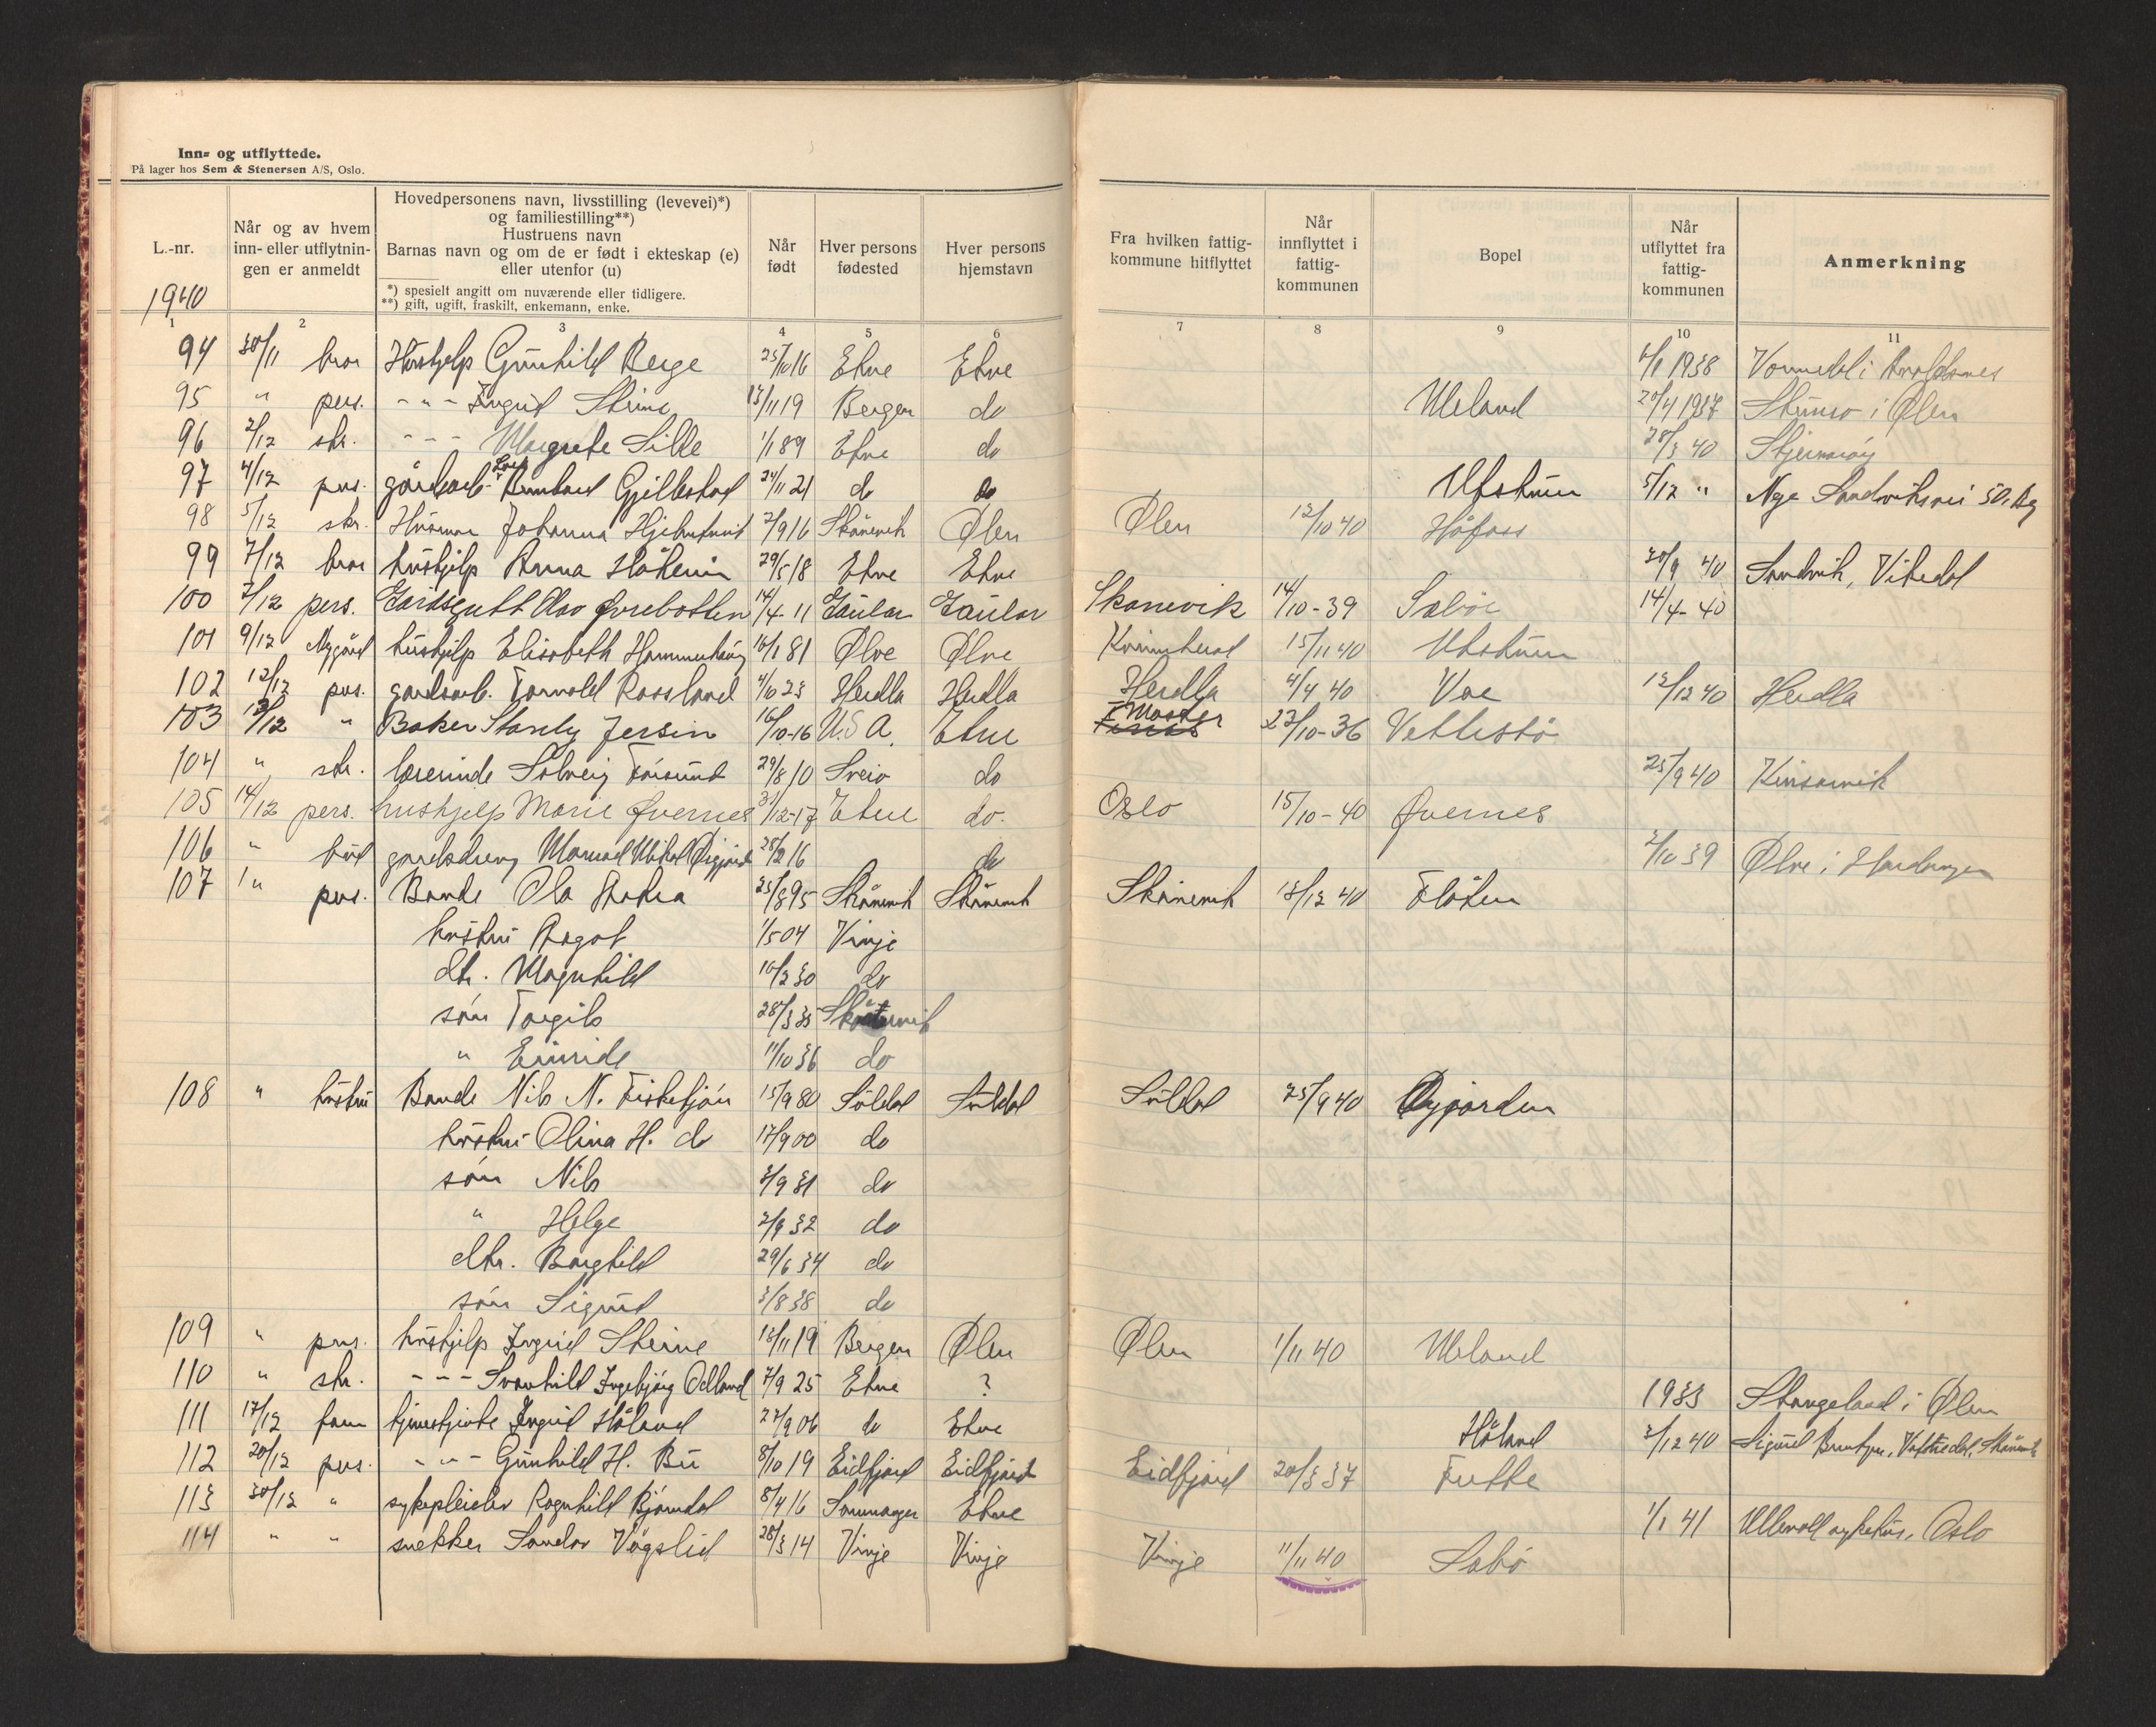 Inn- og utflyttede.
På lager hos Sem & Stenersen A/S, Oslo.
L.-nr.
Når og av hvem inn- eller utflytnin- gen er anmeldt
Hovedpersonens navn, livsstilling (levevei)*) og familiestilling**)
Hustruens navn
Barnas navn og om de er født i ekteskap (e) eller utenfor (u)
*) spesielt angitt om nuværende eller tidligere.
**) gift, ugift, fraskilt, enkemann, enke.
Når født
Hver persons fødested
Hver persons hjemstavn
Fra hvilken fattig- kommune hitflyttet
Når innflyttet i fattig- kommunen
Bopel
Når utflyttet fra fattig- kommunen
Anmerkning
1940
1 2 3 4 5 6 7 8 9 10 11
94 30/11 bror Húshjelp Gúnhild Berge 25/10 16 Etne Etne 6/1 1938
95 " pers. - " - Ingrid Steine 13/11 19 Bergen do Uleland 20/4 1937 i Ølen
96 2/12 skr. - - - Margrete Sille 1/1 89 Etne do 28/3 40
97 4/12 pers. gårdsarb. Gjillestad 24/11 21 do do 5/12 " Nye Sandviksvei 50, Bg
98 5/12 skr. Johanna 2/9 16 Skånevik Ølen Ølen 12/10 40 Håfoss
99 7/12 bror húshjelp Anna 29/5 18 Etne Etne 30/9 40 Sandvik, Vikedal
100 7/12 pers. Gardsgutt Olav Øvrebotten 14/4-11 Gaular Gaular Skanevik 14/10-39 Sæbøe 14/4-40
101 9/12 Nygård húshjelp Elisabeth 16/1 81 Ølve Ølve 15/11 40
102 12/12 pers. gardsarb. Tormold Rossland 4/10 23 Herdla Herdla Herdla 4/4 40 Vae 12/12 40 Herdla
103 13/12 " Baker Stanly Jersin 16/10-16 U.S.A. Etne Moster 27/10-36 Vettestø
104 " skr. lærerinde Solveig 29/8 10 Sveio do 25/9 40 Kinsarvik
105 14/12 pers. hushjelp Marie Øvernes 31/12-17 Etne do. Oslo 15/10-40 Øvernes
106 " búd gardsdreng 28/2 16 do 2/10 39 Ølve i Hardanger
107 " pers. Bonde Ola 25/8 95 Skånevik Skånevik Skånevik 13/12 40 Flåten
hústrú Aagot 1/5 04 Vinje
dtr. Magnhild 10/2 30 do
søn Torgils 28/3 35 Skånevik
" Einride 11/10 36 do
108 " hústrú Bonde Nils N. Fiskekjøn 15/9 80 Súldal Súldal Súldal 25/9 40 Øygarden
hústrú Olina H. do 17/9 00 do
søn Nils 3/9 31 do
" Helge 2/9 32 do
dtr. Borghild 29/6 34 do
søn Sigúrd 3/8 38 do
109 " pers. húshjelp Ingrid Steine 13/11 19 Bergen Ølen Ølen 1/11 40 Uleland
110 " skr. - - - Svanhild Ingebjørg Ødland 7/9 25 Etne ? 1933 Stangeland i Ølen
111 17/12 fam tjenestjente Ingrid Håland 27/9 06 do Etne Håland 2/12 40 Sigúrd
112 20/12 pers. - " - Gúnhild H. Bú 8/10 19 Eidfjord Eidfjord Eidfjord 20/3 37 Frette
113 30/12 " sykepleier Ragnhild Bjørndal 8/4 16 Samnanger Etne 1/1 41 Ullevoll sykehús, Oslo
114 " " snekker Sandor Vågslid 28/3 14 Vinje Vinje Vinje 11/11 40 Sæbø